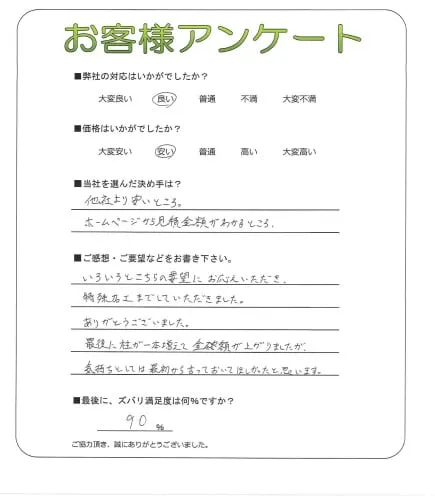 お客様アンケート
■弊社の対応はいかがでしたか？
大変良い 良い 普通 不満 大変不満
■価格はいかがでしたか？
大変安い 安い 普通 高い 大変高い
■当社を選んだ決め手は？
他社より安いところ。
ホームページから見積金額がわかるところ。
■ご感想・ご要望などをお書き下さい。
いろいろとこちらの要望にお応えいただき、
特殊加工までしていただきました。
ありがとうございました。
最後に柱が一本増えて金額が上がりましたが、
気持ちとしては最初から言っておいてほしかったと思います。
■最後に、ズバリ満足度は何%ですか？
90 %
ご協力頂き、誠にありがとうございました。